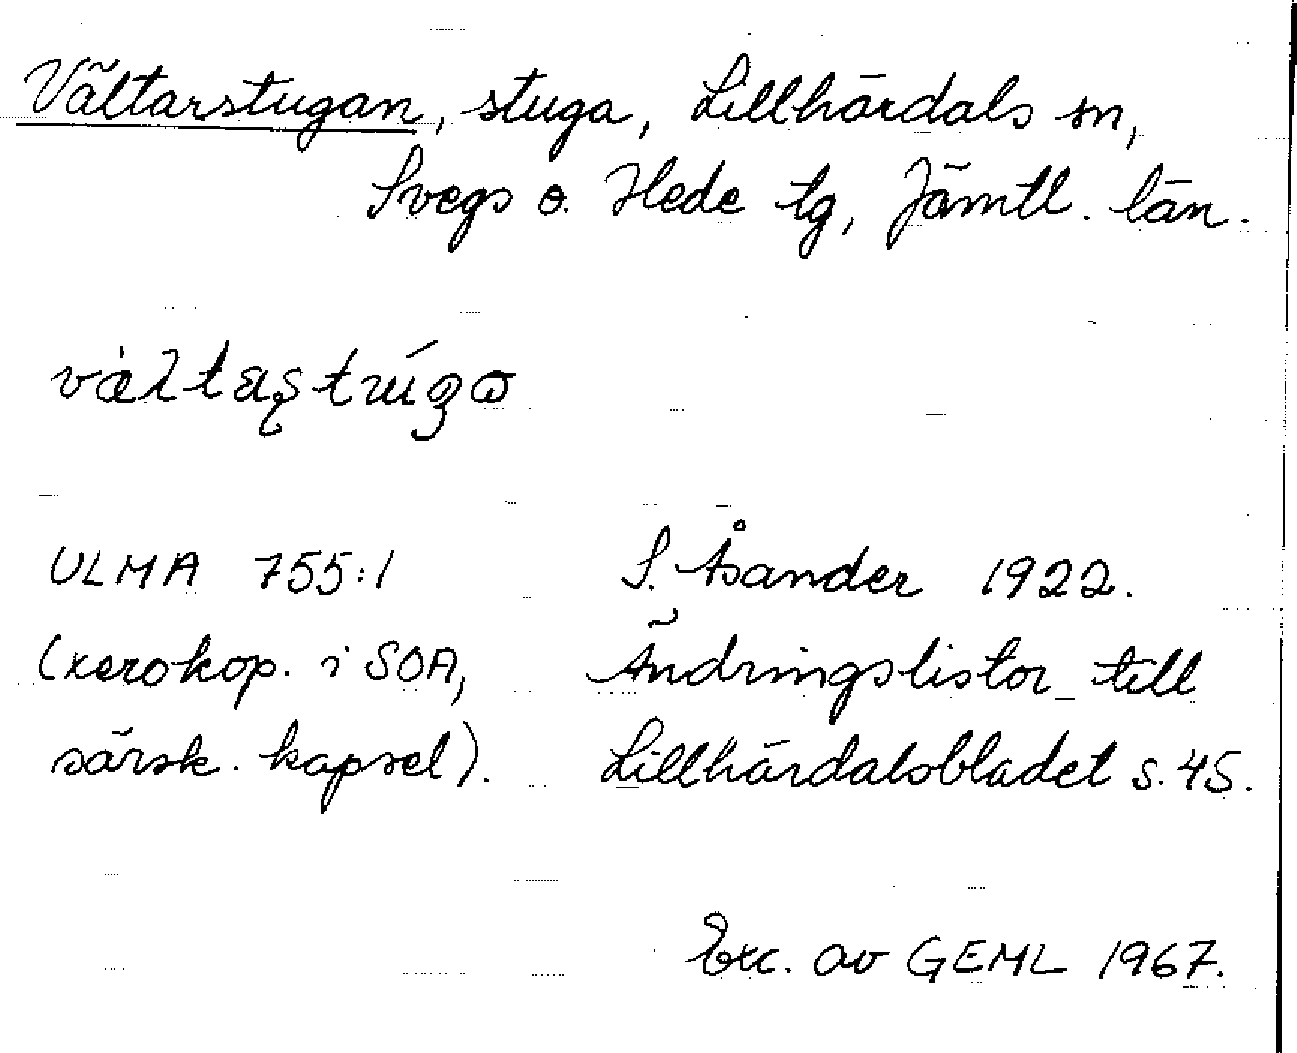 Vältarstugan, stuga, Lillhärdals sn,
Svegs o. Hede tg, Jämtl. län.
ULMA 755:1 S. Åsander 1922.
(xerokop. i SOA, Ändringslistor till
särsk. kapsel). Lillhärdalsbladet s. 45.
Exc. av GEML 1967.